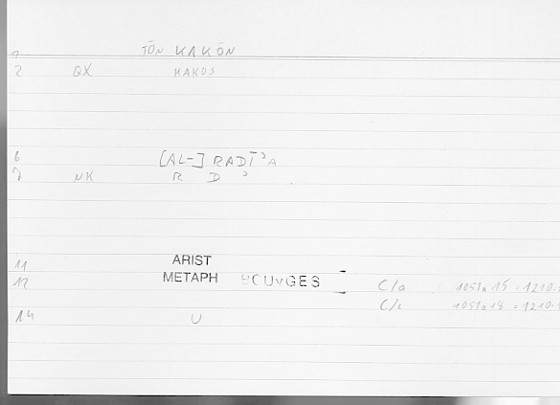 1 TŌN KAKŌN
2 QX KAKOS
6 [AL-] RADĪʾA
7 NK R D ʾ
11 ARIST
12 METAPH BOUYGES C/a 1051a15 = 1210.
C/c 1051a18 = 1210.
14 U